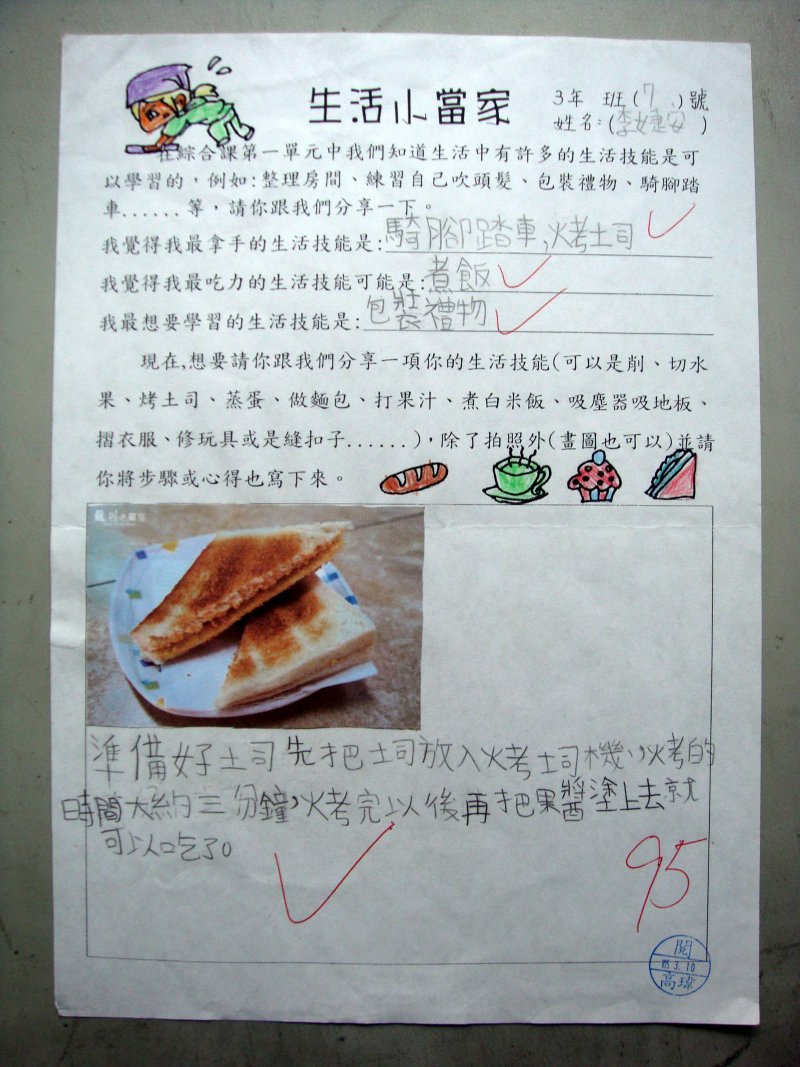 生活小當家
3年 班(7)號
姓名:(李婕安)
在綜合課第一單元中我們知道生活中有許多的生活技能是可
以學習的，例如:整理房間、練習自己吹頭髮、包裝禮物、騎腳踏
車......等，請你跟我們分享一下。
我覺得我最拿手的生活技能是:騎腳踏車,烤土司
我覺得我最吃力的生活技能可能是:煮飯
我最想要學習的生活技能是:包裝禮物
現在,想要請你跟我們分享一項你的生活技能(可以是削、切水
果、烤土司、蒸蛋、做麵包、打果汁、煮白米飯、吸塵器吸地板、
摺衣服、修玩具或是縫扣子......)，除了拍照外(畫圖也可以)並請
你將步驟或心得也寫下來。
準備好土司先把土司放入烤土司機,烤的
時間大約三分鐘,烤完以後再把果醬塗上去就
可以吃了。
95
閱
3.10
高瑋